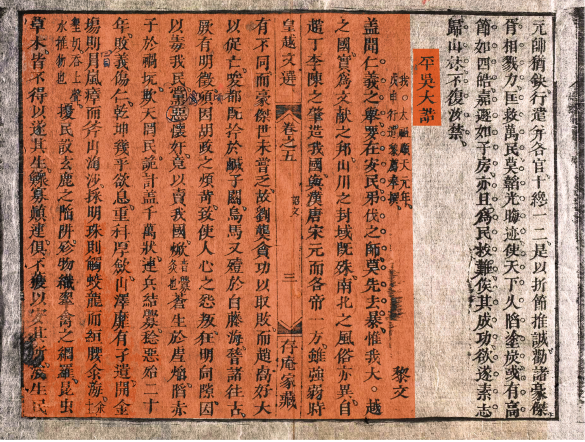 元帥猶欽行遣弁各官十總一二是以折節推誠勸諸豪傑
胥相戮力匡救萬民莫韜光晦迹使天下久陷塗炭或有高
節如四皓嘉遯如子房亦且爲民救難俟其成功欲遂素志
歸山林不復禁
平吳大誥
我太祖順天元年
戊申行遣阮廌奉撰
黎文
盖聞仁義之舉要在安民弔伐之師莫先去暴惟我大越
之國實爲文献之邦山川之封域既殊南北之風俗亦異自
趙丁李陳之肇造我國與漢唐宋元而各帝一方雖強弱時
皇越文選 卷之五 詔文 三 存庵家藏
有不同而豪傑世未嘗乏故劉龑貪功以取敗而趙卨好大
以促亡唆都既於鹹子關烏馬又殪於白藤海嵇諸往古
厥有明徵頃因胡政之煩苛致使人心之怨叛狂明伺隙因
以毒我民黨惡懷奸竟以賣我國焮蒼生於虐焰陷赤
子於禍坑欺天罔民詭計盖千萬狀連兵結釁稔惡殆二十
年敗義傷仁乾坤幾乎欲息重科厚斂山澤靡有孑遺開金
塲則冒嵐瘴而斧山淘沙採明珠則觸蛟龍而絙腰汆海
擾民設玄鹿之陷阱殄物織翠禽之網羅昆虫
草木皆不得以遂其生鰥寡顛連俱不獲以安其所浚生民